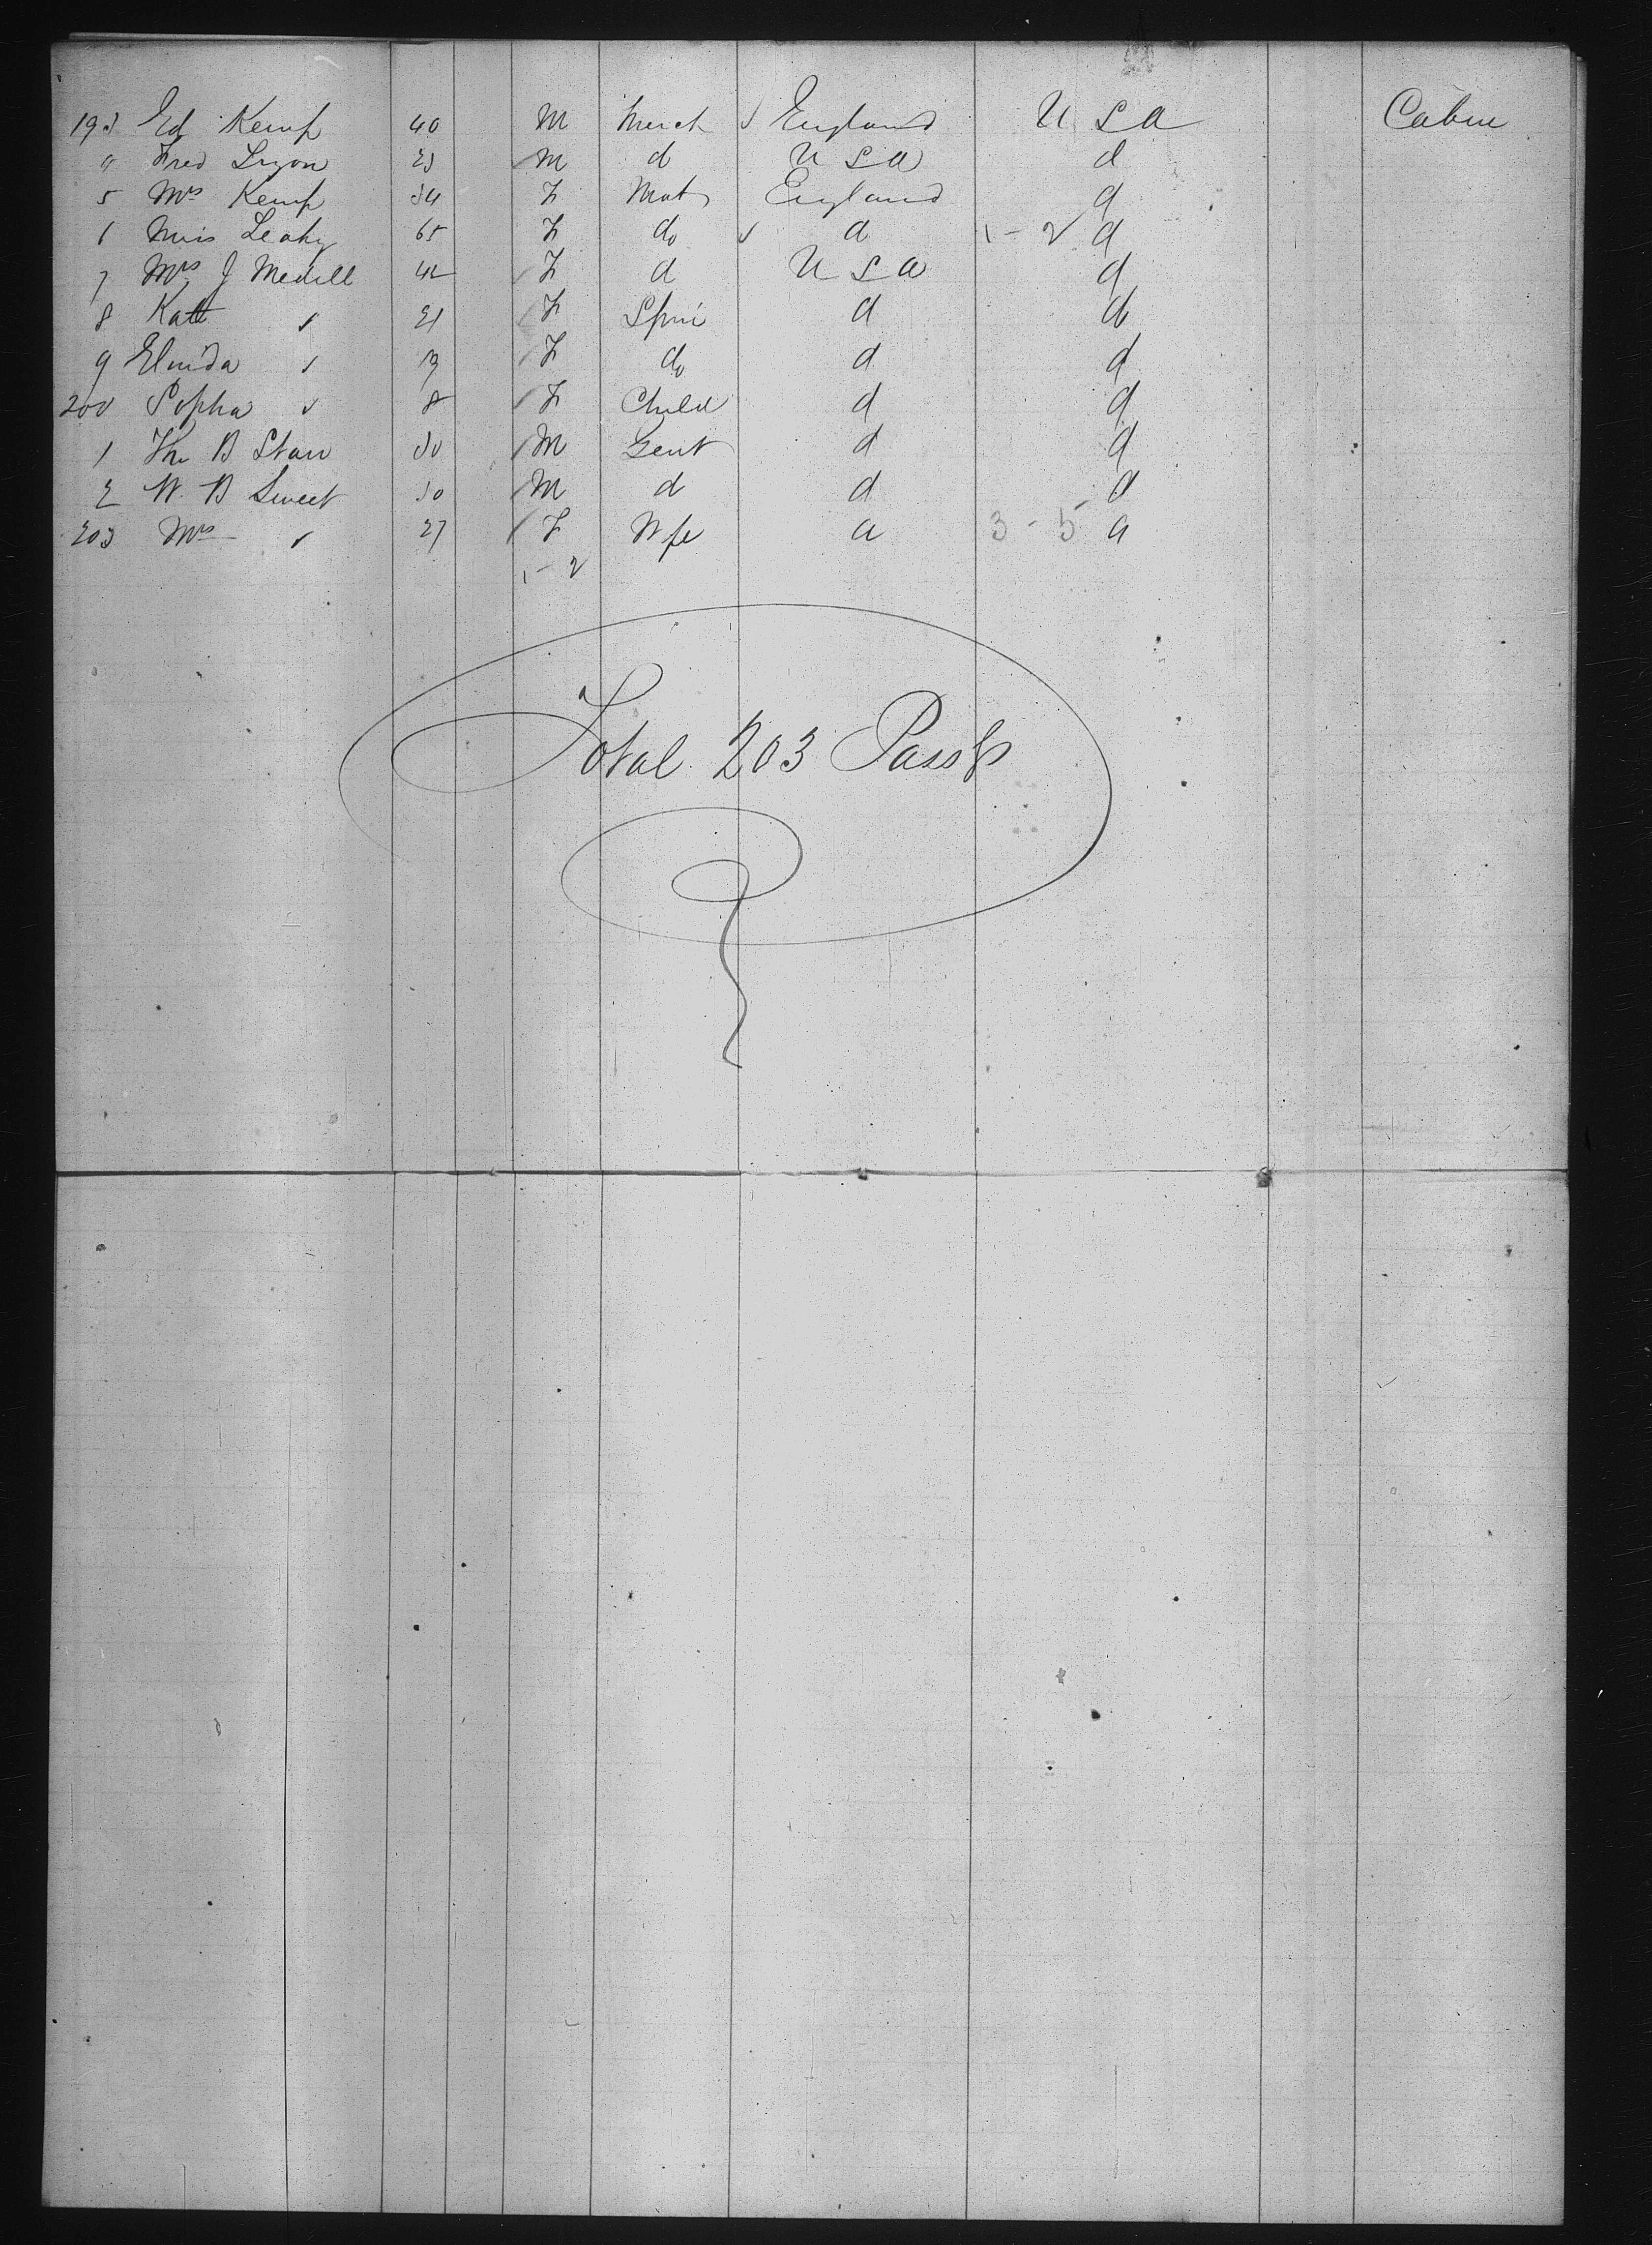 193 Ed Kemp 40 M Merch ✓ England U S A Cabin
4 Fred Lyon 23 M d U S A d
5 Mrs Kemp 34 F Mat England d
6 Miss Leahy 65 F do ✓ d 1 - 2 d
7 Mrs J Medill 42 F d U S A d
8 Kate ✓ 21 F Spin d do
9 Elinida ✓ 13 F do d d
200 Sopha ✓ 8 F Child d d
1 Tho B Starr 30 M Gent d d
2 W. B Sweet 30 M d d d
203 Mrs ✓ 27 F Wfe d 3 - 5 d
1 - 2
Total 203 Passgs